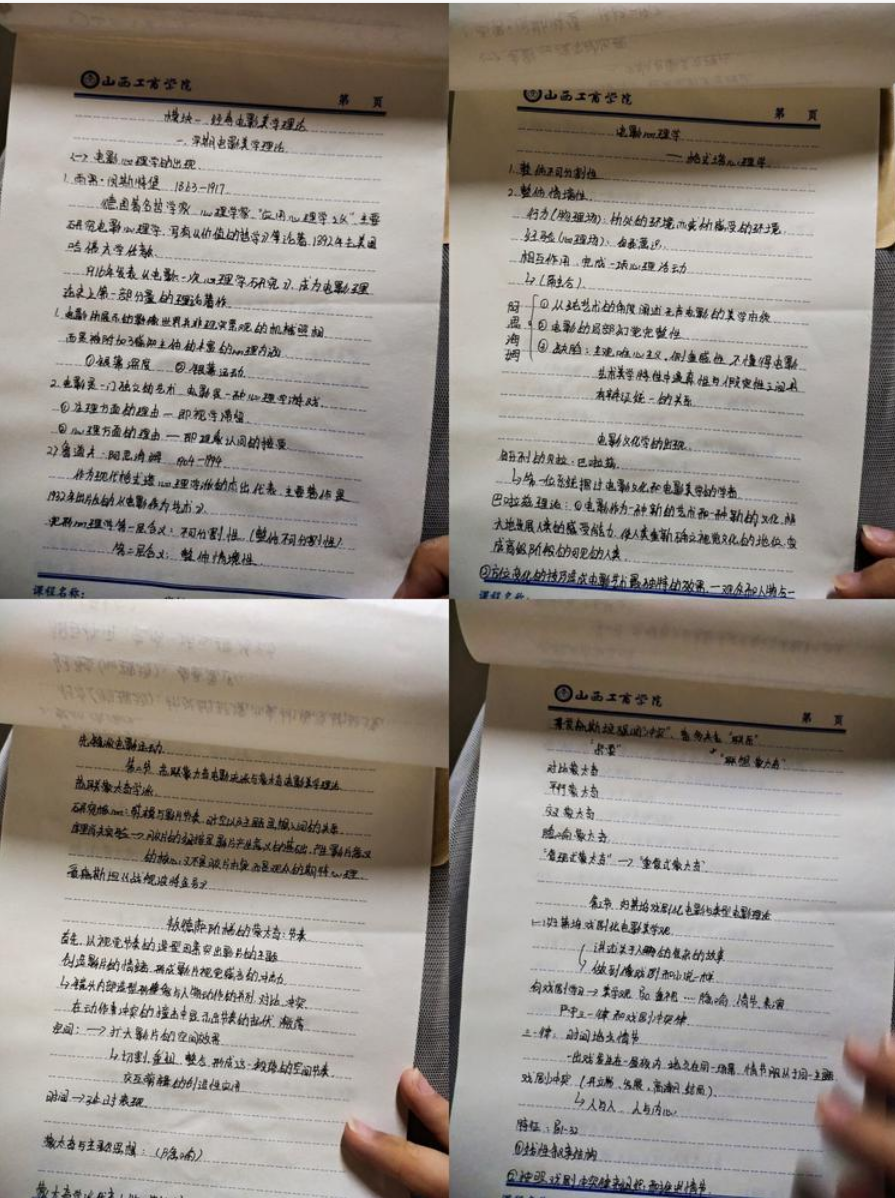 山西工商学院
第 页
模块一 经典电影美学理论
一、早期电影美学理论
(一) 电影心理学的出现
1. 雨果·闵斯特堡 1863-1917
德国著名哲学家 心理学家 "应用心理学之父" 主要
研究电影心理学,写有《价值的哲学》等论著,1892年去美国
哈佛大学任教
1916年发表《电影:一次心理学研究》,成为电影理
论史上第一部分量的理论著作
1. 电影所展示的影像世界并非现实景观的机械照相
而是被附加了感知主体的丰富的心理内涵
①银幕深度 ②银幕运动
2. 电影是一门独立的艺术 电影是一种心理学游戏
①生理方面的理由 — 即视学滞留
②心理方面的理由 — 即现象认同的接受
2) 鲁道夫·阿恩海姆 1904-1994
作为现代格式塔心理学派的杰出代表,主要著作是
1932年出版的《电影作为艺术》
完形心理学第一层含义:不可分割性 (整体不可分割性)
第二层含义:整体情境性
课程名称:
山西工商学院
第 页
电影心理学
— 格式塔心理学
1. 整体不可分割性
2. 整体情境性
行为(物理场):所处的环境而或所感受的环境
经验(心理场):自我意识
相互作用,完成一项心理活动
↳(商主合)
阿恩海姆
①从纯艺术的角度阐述无声电影的美学本质
②电影的局部幻觉完整性
③缺陷:主观唯心主义,侧重感性,不懂得电影
艺术美学特性中逼真性与假定性之间具
有辩证统一的关系
电影文化学的出现
匈牙利的贝拉·巴拉兹
↳第一位系统探讨电影文化和电影美学的学者
巴拉兹理论:①电影作为一种新的艺术和一种新的文化,将
大地发展人类的感受能力,使人类重新确立视觉文化的地位,变
成高级阶格的可见的人类
②方位变化的技巧造成电影艺术最独特的效果,一观众和人物合一
课程名称:
先锋派电影运动
第二节 苏联蒙太奇电影流派与蒙太奇电影美学理论
苏联蒙太奇学派
研究核心:剪辑与影片节奏、时空以及主题思想之间的关系
库里肖夫实验→镜头的组接是影片产生意义的基础,产生影片意义
的核心,又不是镜片本身,而是观众的期待心理
爱森斯坦《战舰波将金号》
敖德萨阶梯的蒙太奇:节奏
首先,从视觉节奏的造型因素突出影片的主题
创造影片的情绪,形成影片视觉感官的冲击力
↳镜头内部造型形象和与人物动作的并列、对比、冲突
在动作与冲突的撞击中显示出节奏的起伏、激荡
空间:→扩大影片的空间效果
↳切割、重组、整合,形成这一独特的空间节奏
交互剪辑的创造性应用
时间→延时表现
蒙太奇与主题思想:(隐喻)
山西工商学院
第 页
爱森斯坦强调"冲突",普多夫金 "联系"
"杂耍" "联想蒙太奇"
对比蒙太奇
平行蒙太奇
交叉蒙太奇
隐喻蒙太奇
"复现式蒙太奇" → "重复式蒙太奇"
第三节 好莱坞戏剧化电影与类型电影理论
一、好莱坞戏剧化电影美学观
讲述关于人物的复杂的故事
做到像戏剧和小说一样
向戏剧学习→美学观 即重视…隐喻、情节、表演
尸守三一律和戏剧冲突律
三一律:时间地点情节
一出戏发生在一昼夜内、地点在同一场景、情节服从于同一主题
戏剧冲突 (开端、发展、高潮、结局)
↳人与人、人与内心
特征:
①线性叙事结构
②按照戏剧冲突律来组织和推进情节